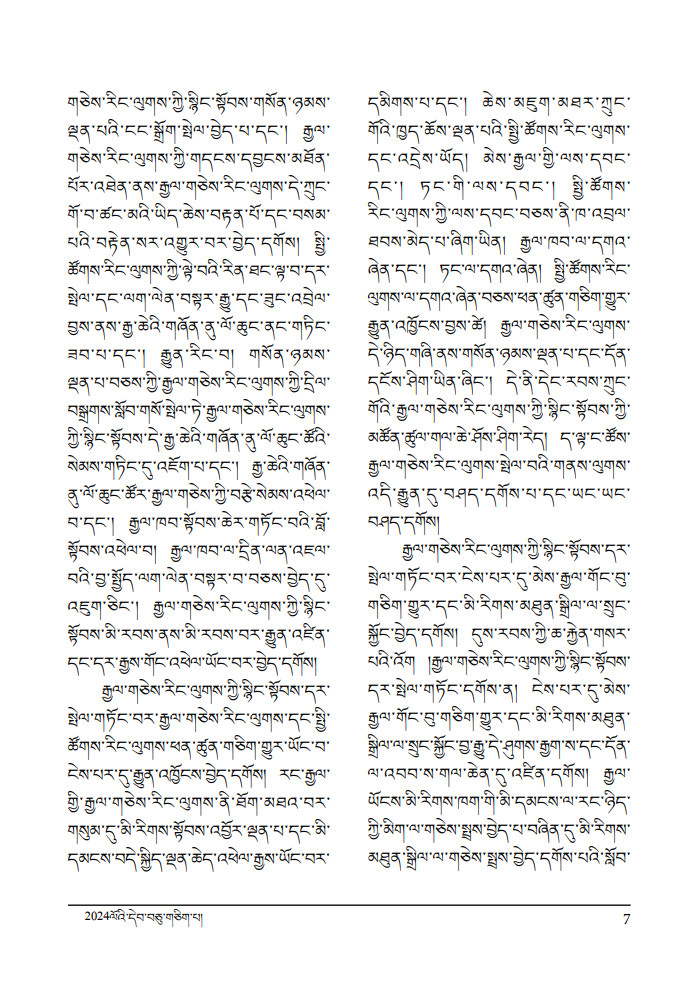 གཅེས་རིང་ལུགས་ཀྱི་སྙིང་སྟོབས་གསོན་ཉམས་
ལྡན་པའི་ངང་སྒྲོག་སྤེལ་བྱེད་པ་དང་། རྒྱལ་
གཅེས་རིང་ལུགས་ཀྱི་གདངས་དབྱངས་མཐོན་
པོར་འཐེན་ནས་རྒྱལ་གཅེས་རིང་ལུགས་དེ་ཀྲུང་
གོ་བ་ཚང་མའི་ཡིད་ཆེས་བརྟན་པོ་དང་བསམ་
པའི་བརྟེན་སར་འགྱུར་བར་བྱེད་དགོས། སྤྱི་
ཚོགས་རིང་ལུགས་ཀྱི་ལྟེ་བའི་རིན་ཐང་ལྟ་བ་དར་
སྤེལ་དང་ལག་ལེན་བསྟར་རྒྱུ་དང་ཟུང་འབྲེལ་
བྱས་ནས་རྒྱ་ཆེའི་གཞོན་ནུ་ལོ་ཆུང་ནང་གཏིང་
ཟབ་པ་དང་། རྒྱུན་རིང་བ། གསོན་ཉམས་
ལྡན་པ་བཅས་ཀྱི་རྒྱལ་གཅེས་རིང་ལུགས་ཀྱི་དྲིལ་
བསྒྲགས་སློབ་གསོ་སྤེལ་ཏེ་རྒྱལ་གཅེས་རིང་ལུགས་
ཀྱི་སྙིང་སྟོབས་དེ་རྒྱ་ཆེའི་གཞོན་ནུ་ལོ་ཆུང་ཚོའི་
སེམས་གཏིང་དུ་འཇོག་པ་དང་། རྒྱ་ཆེའི་གཞོན་
ནུ་ལོ་ཆུང་ཚོར་རྒྱལ་གཅེས་ཀྱི་བརྩེ་སེམས་འཕེལ་
བ་དང་། རྒྱལ་ཁབ་སྟོབས་ཆེར་གཏོང་བའི་བློ་
སྟོབས་འཕེལ་བ། རྒྱལ་ཁབ་ལ་དྲིན་ལན་འཇལ་
བའི་བྱ་སྤྱོད་ལག་ལེན་བསྟར་བ་བཅས་བྱེད་དུ་
འཇུག་ཅིང་། རྒྱལ་གཅེས་རིང་ལུགས་ཀྱི་སྙིང་
སྟོབས་མི་རབས་ནས་མི་རབས་བར་རྒྱུན་འཛིན་
དང་དར་རྒྱས་གོང་འཕེལ་ཡོང་བར་བྱེད་དགོས།
རྒྱལ་གཅེས་རིང་ལུགས་ཀྱི་སྙིང་སྟོབས་དར་
སྤེལ་གཏོང་བར་རྒྱལ་གཅེས་རིང་ལུགས་དང་སྤྱི་
ཚོགས་རིང་ལུགས་ཕན་ཚུན་གཅིག་གྱུར་ཡོང་བ་
ངེས་པར་དུ་རྒྱུན་འཁྱོངས་བྱེད་དགོས། རང་རྒྱལ་
གྱི་རྒྱལ་གཅེས་རིང་ལུགས་ནི་ཐོག་མཐའ་བར་
གསུམ་དུ་མི་རིགས་སྟོབས་འབྱོར་ལྡན་པ་དང་མི་
དམངས་བདེ་སྐྱིད་ལྡན་ཆེད་འཕེལ་རྒྱས་ཡོང་བར་
དམིགས་པ་དང་། ཆེས་མཇུག་མཐར་ཀྲུང་
གོའི་ཁྱད་ཆོས་ལྡན་པའི་སྤྱི་ཚོགས་རིང་ལུགས་
དང་འདྲེས་ཡོད། མེས་རྒྱལ་གྱི་ལས་དབང་
དང་། ཏང་གི་ལས་དབང་། སྤྱི་ཚོགས་
རིང་ལུགས་ཀྱི་ལས་དབང་བཅས་ནི་ཁ་འབྲལ་
ཐབས་མེད་པ་ཞིག་ཡིན། རྒྱལ་ཁབ་ལ་དགའ་
ཞེན་དང་། ཏང་ལ་དགའ་ཞེན། སྤྱི་ཚོགས་རིང་
ལུགས་ལ་དགའ་ཞེན་བཅས་ཕན་ཚུན་གཅིག་གྱུར་
རྒྱུན་འཁྱོངས་བྱས་ཚེ། རྒྱལ་གཅེས་རིང་ལུགས་
དེ་ཉིད་གཞི་ནས་གསོན་ཉམས་ལྡན་པ་དང་དོན་
དངོས་ཤིག་ཡིན་ཞིང་། དེ་ནི་དེང་རབས་ཀྲུང་
གོའི་རྒྱལ་གཅེས་རིང་ལུགས་ཀྱི་སྙིང་སྟོབས་ཀྱི་
མཚོན་ཚུལ་གལ་ཆེ་ཤོས་ཤིག་རེད། ད་ལྟ་ང་ཚོས་
རྒྱལ་གཅེས་རིང་ལུགས་སྤེལ་བའི་གནས་ལུགས་
འདི་རྒྱུན་དུ་བཤད་དགོས་པ་དང་ཡང་ཡང་
བཤད་དགོས།
རྒྱལ་གཅེས་རིང་ལུགས་ཀྱི་སྙིང་སྟོབས་དར་
སྤེལ་གཏོང་བར་ངེས་པར་དུ་མེས་རྒྱལ་གོང་བུ་
གཅིག་གྱུར་དང་མི་རིགས་མཐུན་སྒྲིལ་ལ་སྲུང་
སྐྱོང་བྱེད་དགོས། དུས་རབས་ཀྱི་ཆ་རྐྱེན་གསར་
པའི་འོག །རྒྱལ་གཅེས་རིང་ལུགས་ཀྱི་སྙིང་སྟོབས་
དར་སྤེལ་གཏོང་དགོས་ན། ངེས་པར་དུ་མེས་
རྒྱལ་གོང་བུ་གཅིག་གྱུར་དང་མི་རིགས་མཐུན་
སྒྲིལ་ལ་སྲུང་སྐྱོང་བྱ་རྒྱུ་དེ་ཤུགས་རྒྱག་ས་དང་དོན་
ལ་འབབ་ས་གལ་ཆེན་དུ་འཛིན་དགོས། རྒྱལ་
ཡོངས་མི་རིགས་ཁག་གི་མི་དམངས་ལ་རང་ཉིད་
ཀྱི་མིག་ལ་གཅེས་སྤྲས་བྱེད་པ་བཞིན་དུ་མི་རིགས་
མཐུན་སྒྲིལ་ལ་གཅེས་སྤྲས་བྱེད་དགོས་པའི་སློབ་
2024ལོའི་དེབ་བཅུ་གཅིག་པ།
7